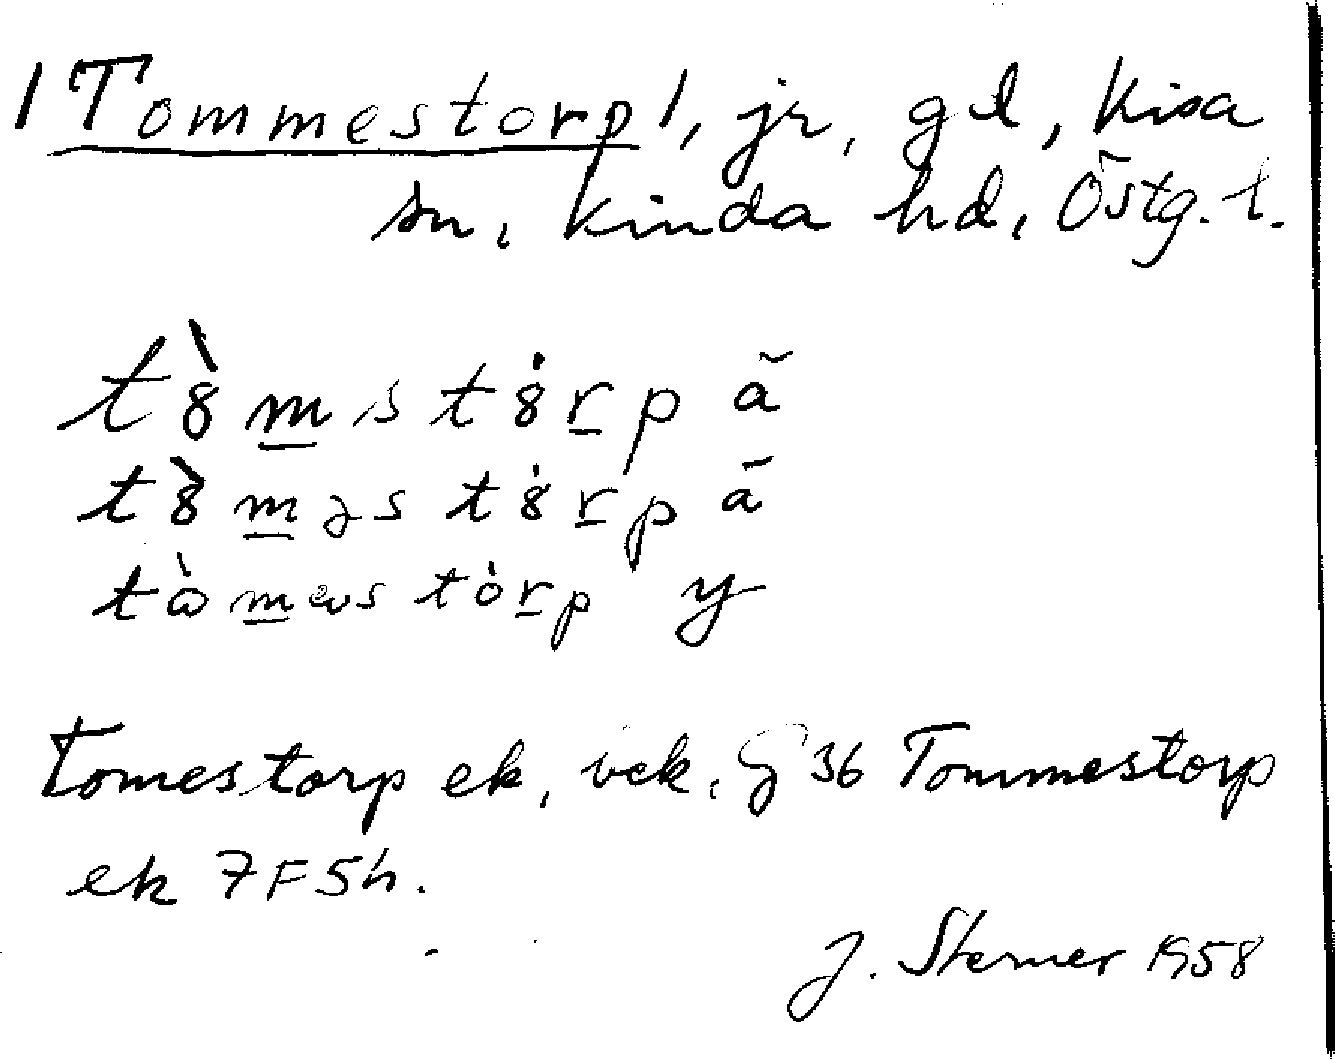 /Tommestorp/, jr, gd, Kisa
sn, Kinda hd, Östg. l.
t8̀m̲st8̇r̲p ă
t8̀m̲əst8̇r̲p ā
tὼm̲ɐstȯr̲p y
Tomestorp ek, vek, § 36 Tommestorp
ek 7F5h.
J. Sterner 1958